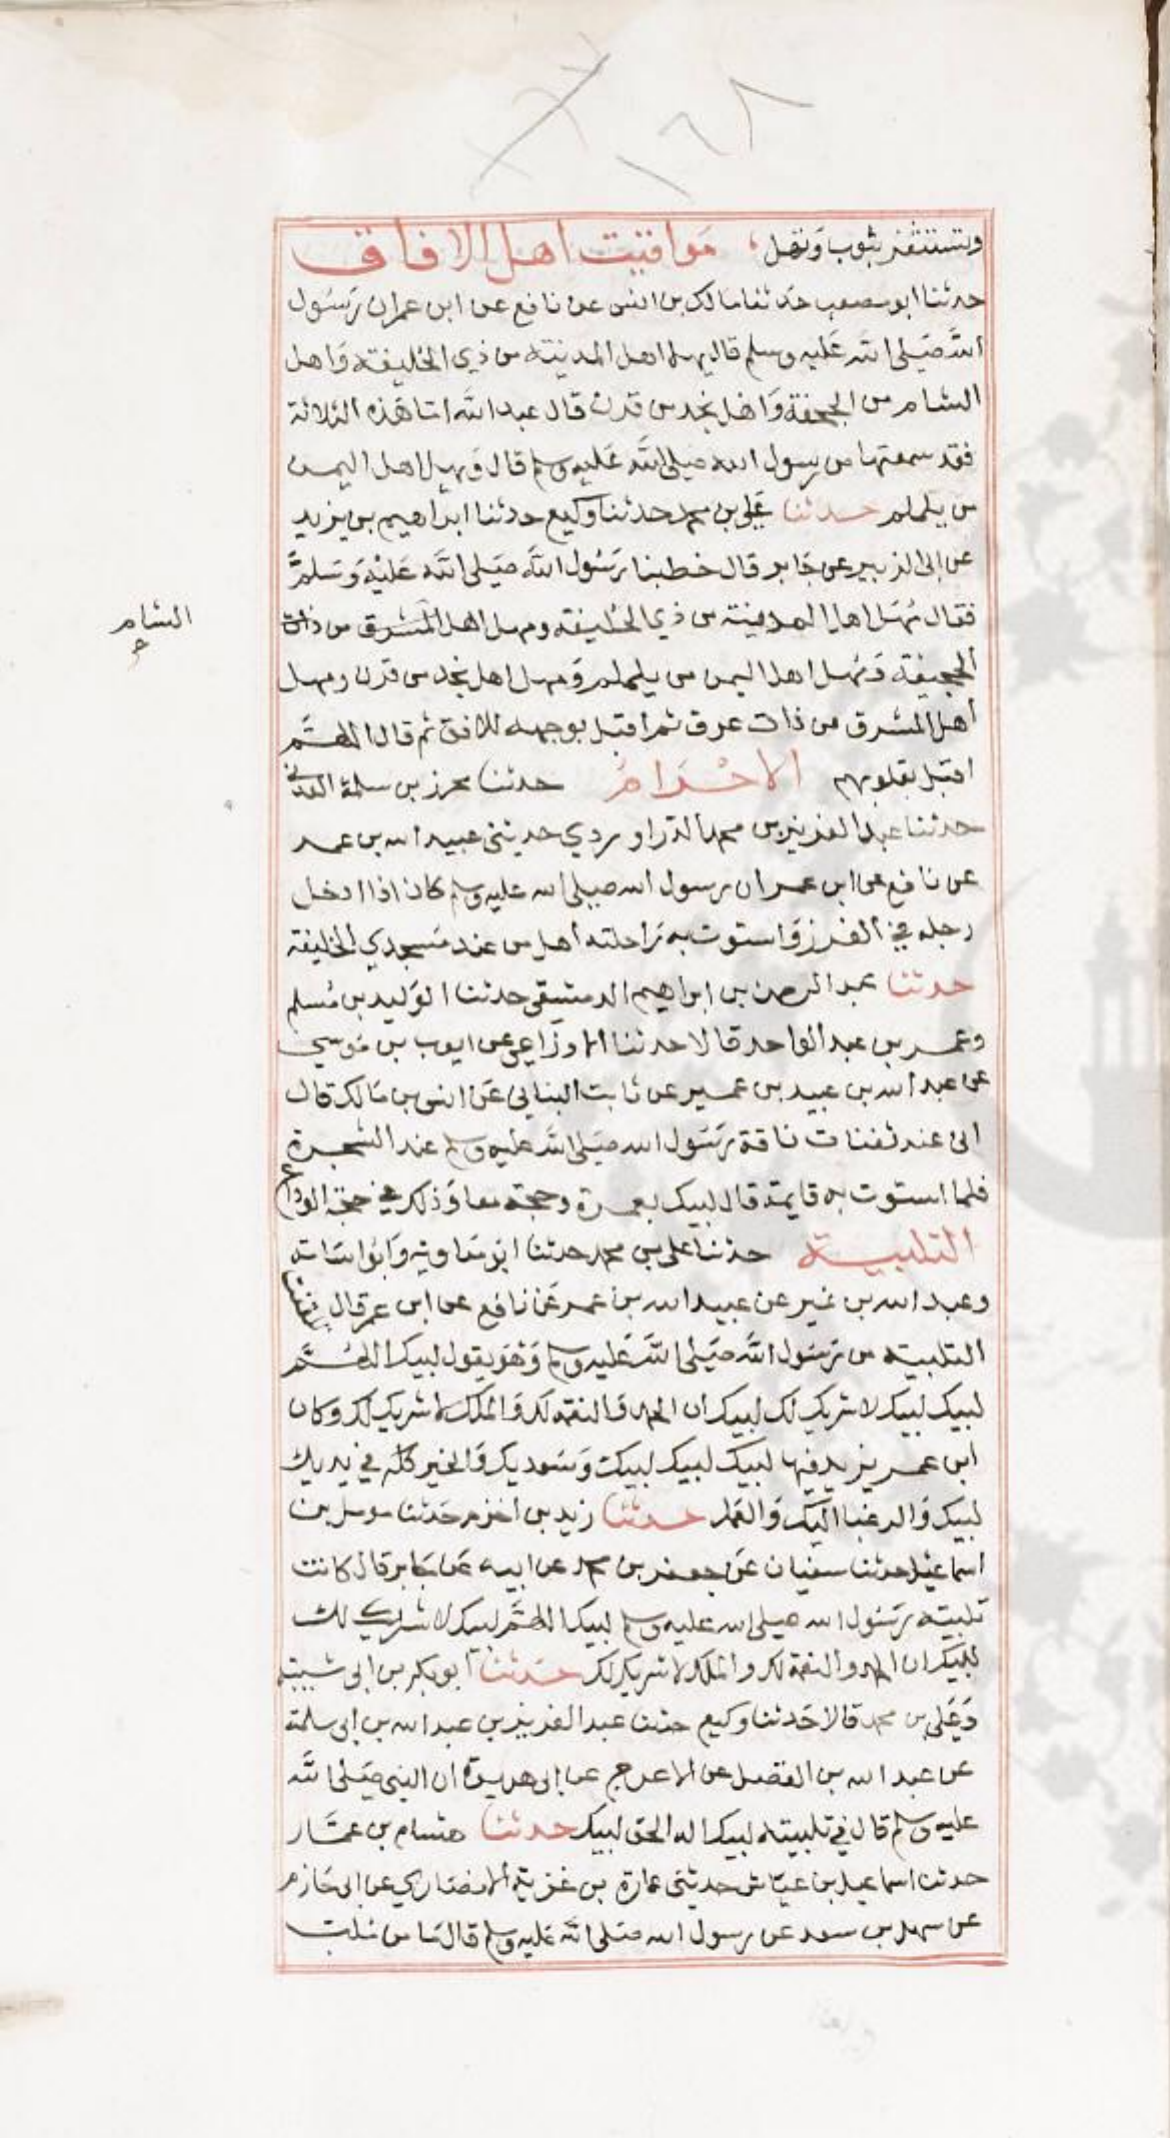 وتستثفر بثوب وتهل مواقيت اهل الافاق
حدثنا ابو مصعب حدثنا مالك بن انس عن نافع عن ابن عمر ان رسول
الله صلى الله عليه وسلم قال يهل اهل المدينة من ذي الحليفة واهل
الشام من الجحفة واهل نجد من قرن قال عبد الله اما هذه الثلاثة
فقد سمعتها من رسول الله صلى الله عليه وسلم قال ويهل اهل اليمن
من يلملم حدثنا علي بن محمد حدثنا وكيع حدثنا ابراهيم بن يزيد
عن ابى الزبير عن جابر قال خطبنا رسول الله صلى الله عليه وسلم
فقال مهل اهل المدينة من ذي الحليفة ومهل اهل المشرق من ذات
الشام
الجحيفة ومهل اهل اليمن من يلملم ومهل اهل نجد من قرن ومهل
أهل المشرق من ذات عرق ثم اقبل بوجهه للافق ثم قال اللهم
اقبل بقلوبهم الاحرام حدثنا محرز بن سلمة العدني
حدثنا عبد العزيز بن محمد الدراوردي حدثني عبيد الله بن عمر
عن نافع عن ابن عمر ان رسول الله صلى الله عليه وسلم كان اذا ادخل
رجله في الغرز واستوت به راحلته اهل من عند مسجد ذي الحليفة
حدثنا عبد الرحمن بن ابراهيم الدمشقي حدثنا الوليد بن مسلم
وعمر بن عبد الواحد قالا حدثنا الاوزاعي عن ايوب بن موسي
عن عبد الله بن عبيد بن عمير عن ثابت البناني عن انس بن مالك قال
انى عند ثفنات ناقة رسول الله صلى الله عليه وسلم عند الشجرة
فلما استوت به قايمة قال لبيك بعمرة وحجة معا وذلك في حجة الوداع
التلبية حدثنا علي بن محمد حدثنا ابو معاوية وابو اسامة
وعبد الله بن نمير عن عبيد الله بن عمر عن نافع عن ابن عمر قال تلقفت
التلبية من رسول الله صلى الله عليه وسلم وهو يقول لبيك اللهم
لبيك لبيك لا شريك لك لبيك ان الحمد والنعمة لك والملك لا شريك لك وكان
ابن عمر يزيد فيها لبيك لبيك لبيك وسعديك والخير كله في يديك
لبيك والرغبا اليك والعمل حدثنا زيد بن اخزم حدثنا مومل بن
اسماعيل حدثنا سفيان عن جعفر بن محمد عن ابيه عن جابر قال كانت
تلبية رسول الله صلى الله عليه وسلم لبيك اللهم لبيك لا شريك لك
لبيك ان الحمد والنعمة لك والملك لا شريك لك حدثنا ابو بكر بن ابى شيبة
وعلي بن محمد قالا حدثنا وكيع حدثنا عبد العزيز بن عبد الله بن ابى سلمة
عن عبد الله بن الفضل عن الاعرج عن ابى هريرة ان النبي صلى الله
عليه وسلم قال في تلبيته لبيك اله الحق لبيك حدثنا هشام بن عمار
حدثنا اسماعيل بن عياش حدثنى عمارة بن غزية الانصاري عن ابى حازم
عن سهل بن سعد عن رسول الله صلى الله عليه وسلم قال ما من ملب